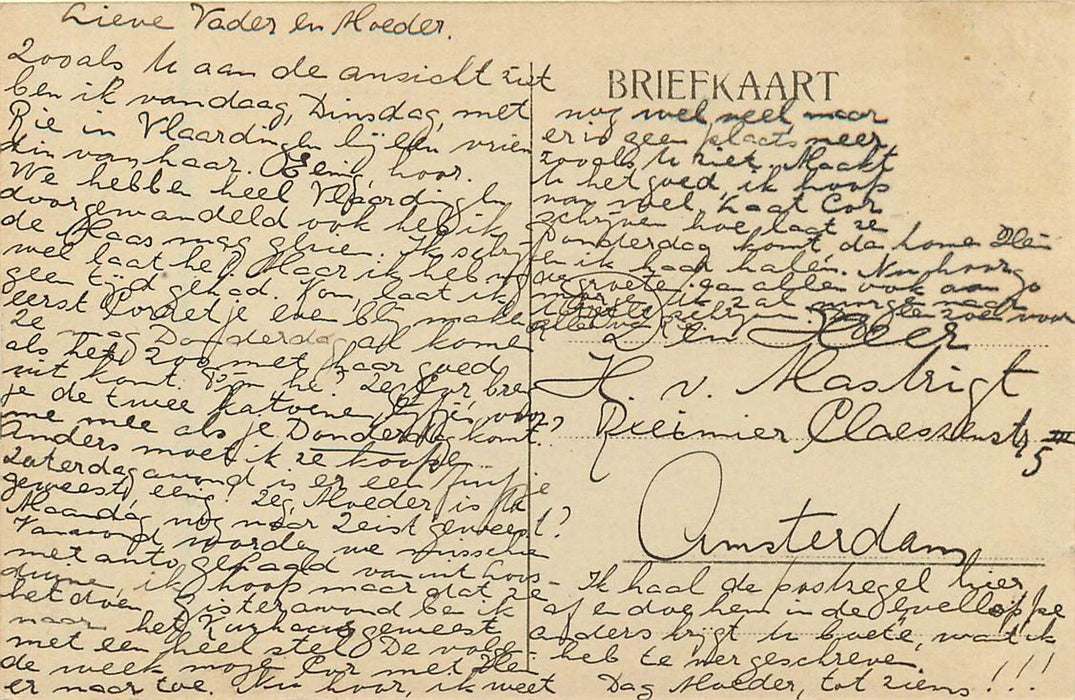 Lieve Vader en Moeder.
Zooals U aan de ansicht ziet
ben ik vandaag, Dinsdag, met
Rie in Vlaardingen bij een vrien
din van haar. Eenig, hoor.
We hebben heel Vlaardingen
doorgewandeld ook heb ik
de Maas mag glue. Ik schrijf
wel laat hè! Maar ik heb nog
geen tijd gehad. Kom, laat ik
eerst Corretje even blij maken
Ze mag Donderdag al komen
als het zoo met haar goed
uit komt. Fijn hè? Zeg Cor breng
je de twee katoenen lijfjes voor
me mee als je Donderdag komt?
Anders moet ik ze koopen.
Zaterdagavond is er een fuifje
geweest, eenig! Zeg, Moeder is Pa
Maandag nog naar Zeist geweest?
Vanavond worden we misschien
met auto gehaald vanuit Loos-
duinen, ik hoop maar dat ze
het doen. Gisteravond ben ik
naar het Kurhaus geweest
met een heel stel. De volgen-
de week moge Cor met Hle
er naar toe. Nu hoor, ik weet
BRIEFKAART
nog wel veel maar
er is geen plaats meer
zooals U ziet. Maakt
U het goed, ik hoop
van wel. Laat Cor
schrijven hoe laat ze
Donderdag komt dan kome
en ik haar halen. Nu hoor
de groete aan allen ook aan
Ik zal morgen naar
schrijven. zoen voor
allen v. Rie
Den Heer
H. v. Mastrigt
Reinier Claeszenstr 5 III
Amsterdam
Ik haal de postzegel hier
af en doe hem in de envelloppe
anders krijgt U boete, wat ik
heb te ver geschreven.
Dag Moeder, tot ziens!!!